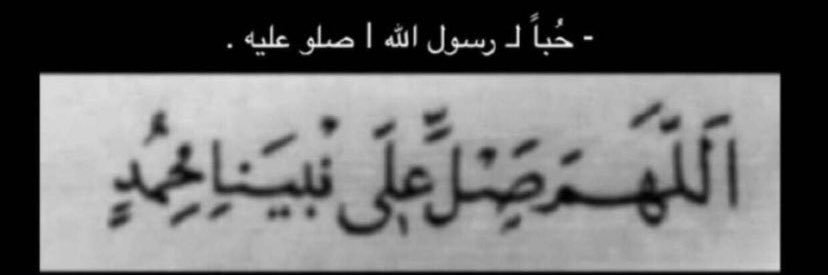 - حُباً لـ رسول الله | صلو عليه .
اَللَّهَمَ صَِلِّ عَلَى نَبِيَنِا مُحِمُدٍ